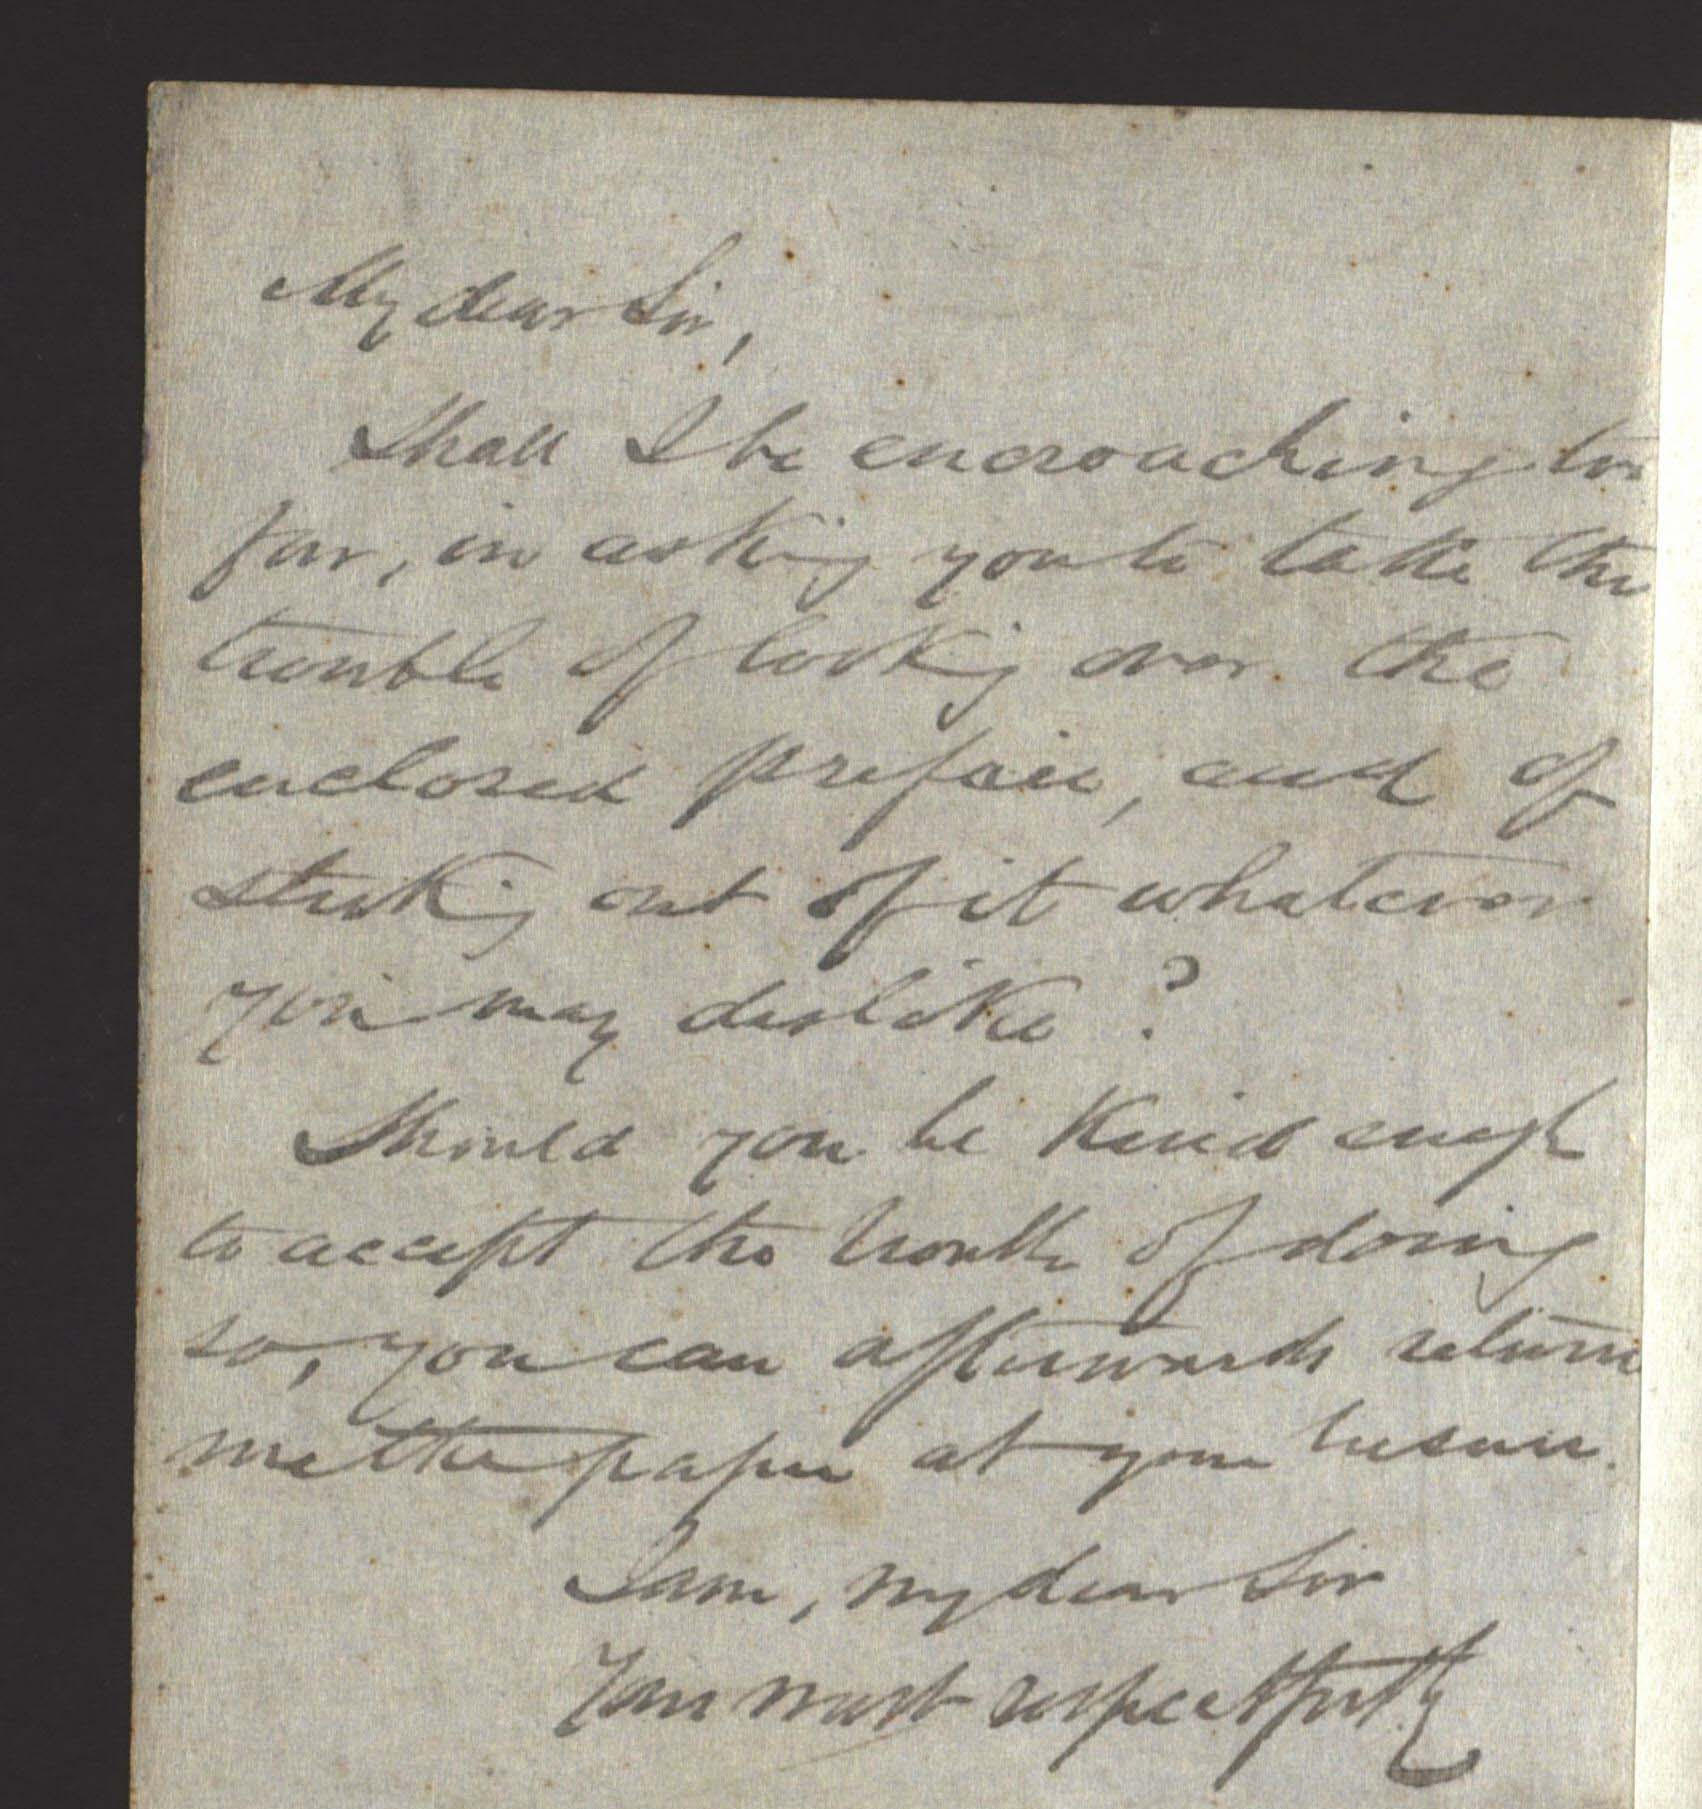 My dear Sir,
Shall I be encroaching too
far, in asking you to take the
trouble of looking over the
enclosed preface, and of
striking out of it whatever
you may dislike?
Should you be kind enough
to accept the trouble of doing
so, you can afterwards return
me the paper at your leisure.
I am, my dear Sir
Yours most respectfully